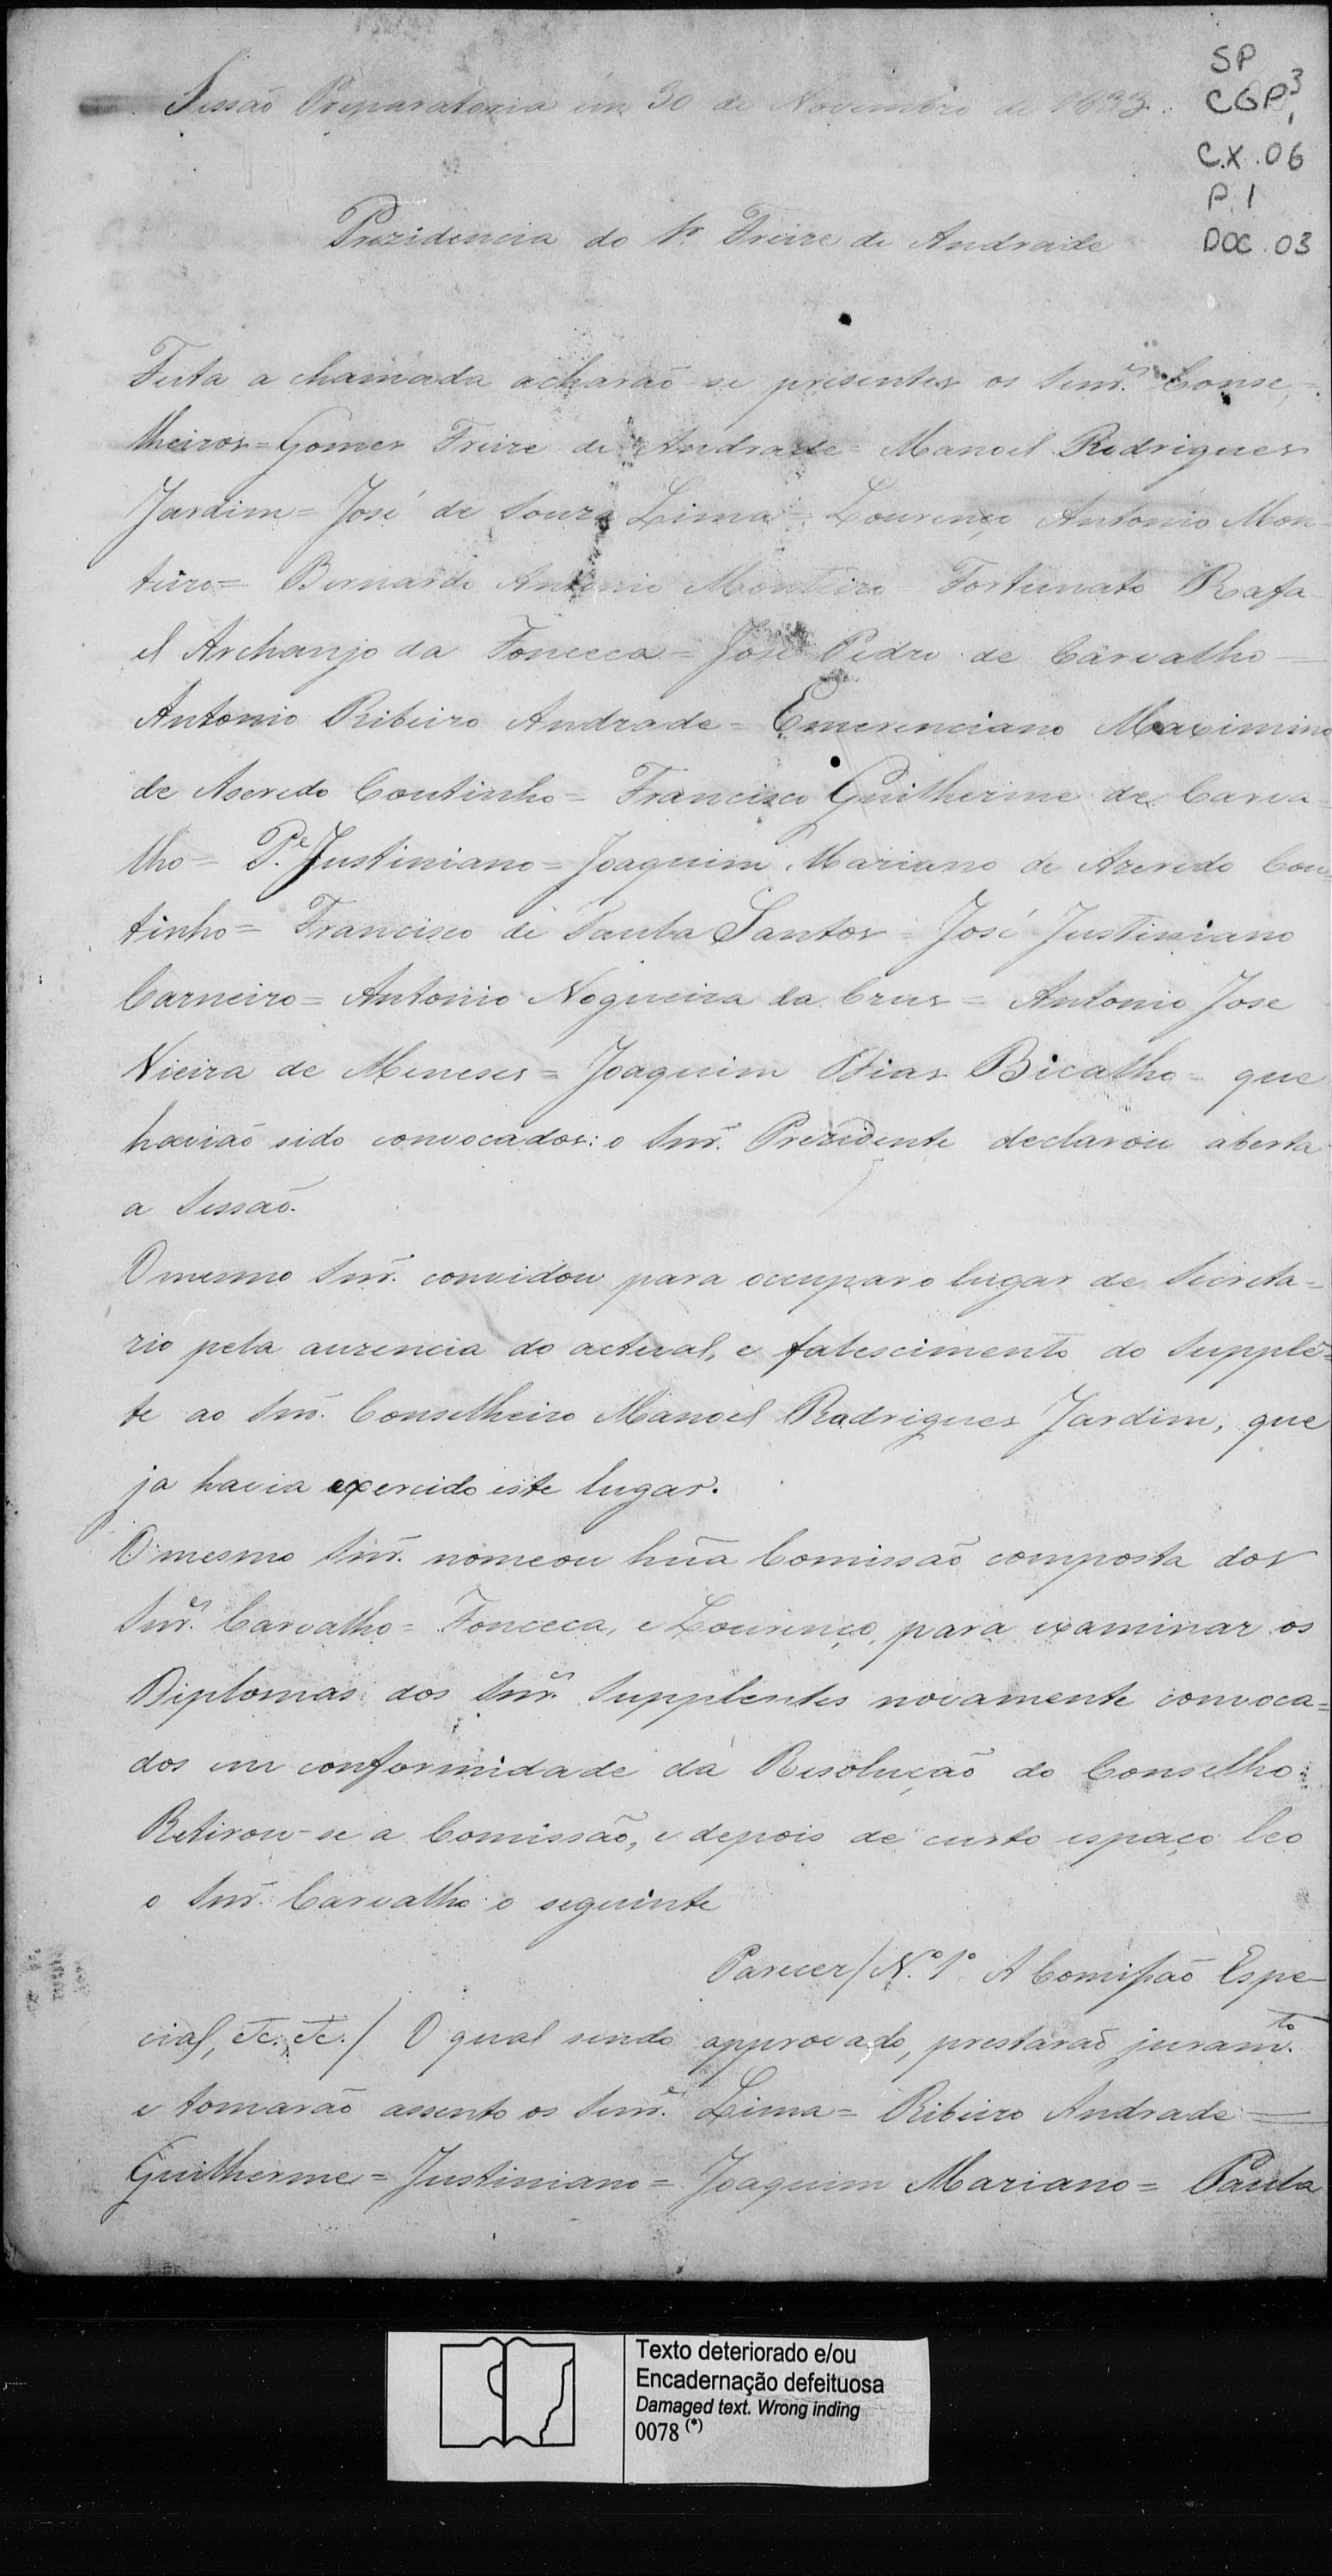 SP
CGP³,
CX.06
P.1
DOC.03
Sessão Preparatoria em 30 de Novembro de 1833.
Prezidencia do Sr. Freire de Andrade
Feita a chamada acharaõ-se presentes os Senr.es Conse=
lheiros=Gomes Freire de Andrade= Manoel Rodrigues
Jardim= José de Souza Lima= Lourenço Antonio Mon
teiro= Bernardo Antonio Monteiro Fortunato Rafa
el Archanjo da Fonceca= José Pedro de Carvalho=
Antonio Ribeiro Andrade= Emerenciano Maximino
de Aseredo Coutinho= Francisco Guilherme de Carva=
lho= P.e Justiniano= Joaquim Mariano de Azeredo Cou=
tinho= Francisco de Paula Santos= José Justiniano
Carneiro= Antonio Nogueira da Crus= Antonio Jose
Vieira de Meneses= Joaquim Dias Bicalho= que
haviaõ sido convocados: o Snr. Prezidente declarou aberta
a Sessaõ.
O mesmo Snr. convidou para occupar o lugar de Secreta=
rio pela auzencia do actual, e falescimento do Supplẽ=
te ao Snr. Conselheiro Manoel Rodrigues Jardim, que
ja havia exercido este lugar.
O mesmo Snr. nomeou hũa Comissão composta dos
Snr.es Carvalho= Fonceca, e Lourenço, para examinar os
Diplomas dos Snr.es Supplentes novamente convoca=
dos em conformidade da Resolução do Conselho:
Retirou-se a Comissão, e depois de curto espaço leo
o Snr. Carvalho o seguinte
Parecer/N.º 1º A Comissaõ Espe-
cial, &c. &c./ O qual sendo approvado, prestaraõ juram.to
e tomarão assento os Senr.es Lima= Ribeiro Andrade=
Guilherme= Justiniano= Joaquim Mariano= Paula
Texto deteriorado e/ou
Encadernação defeituosa
Damaged text. Wrong inding
0078 (*)